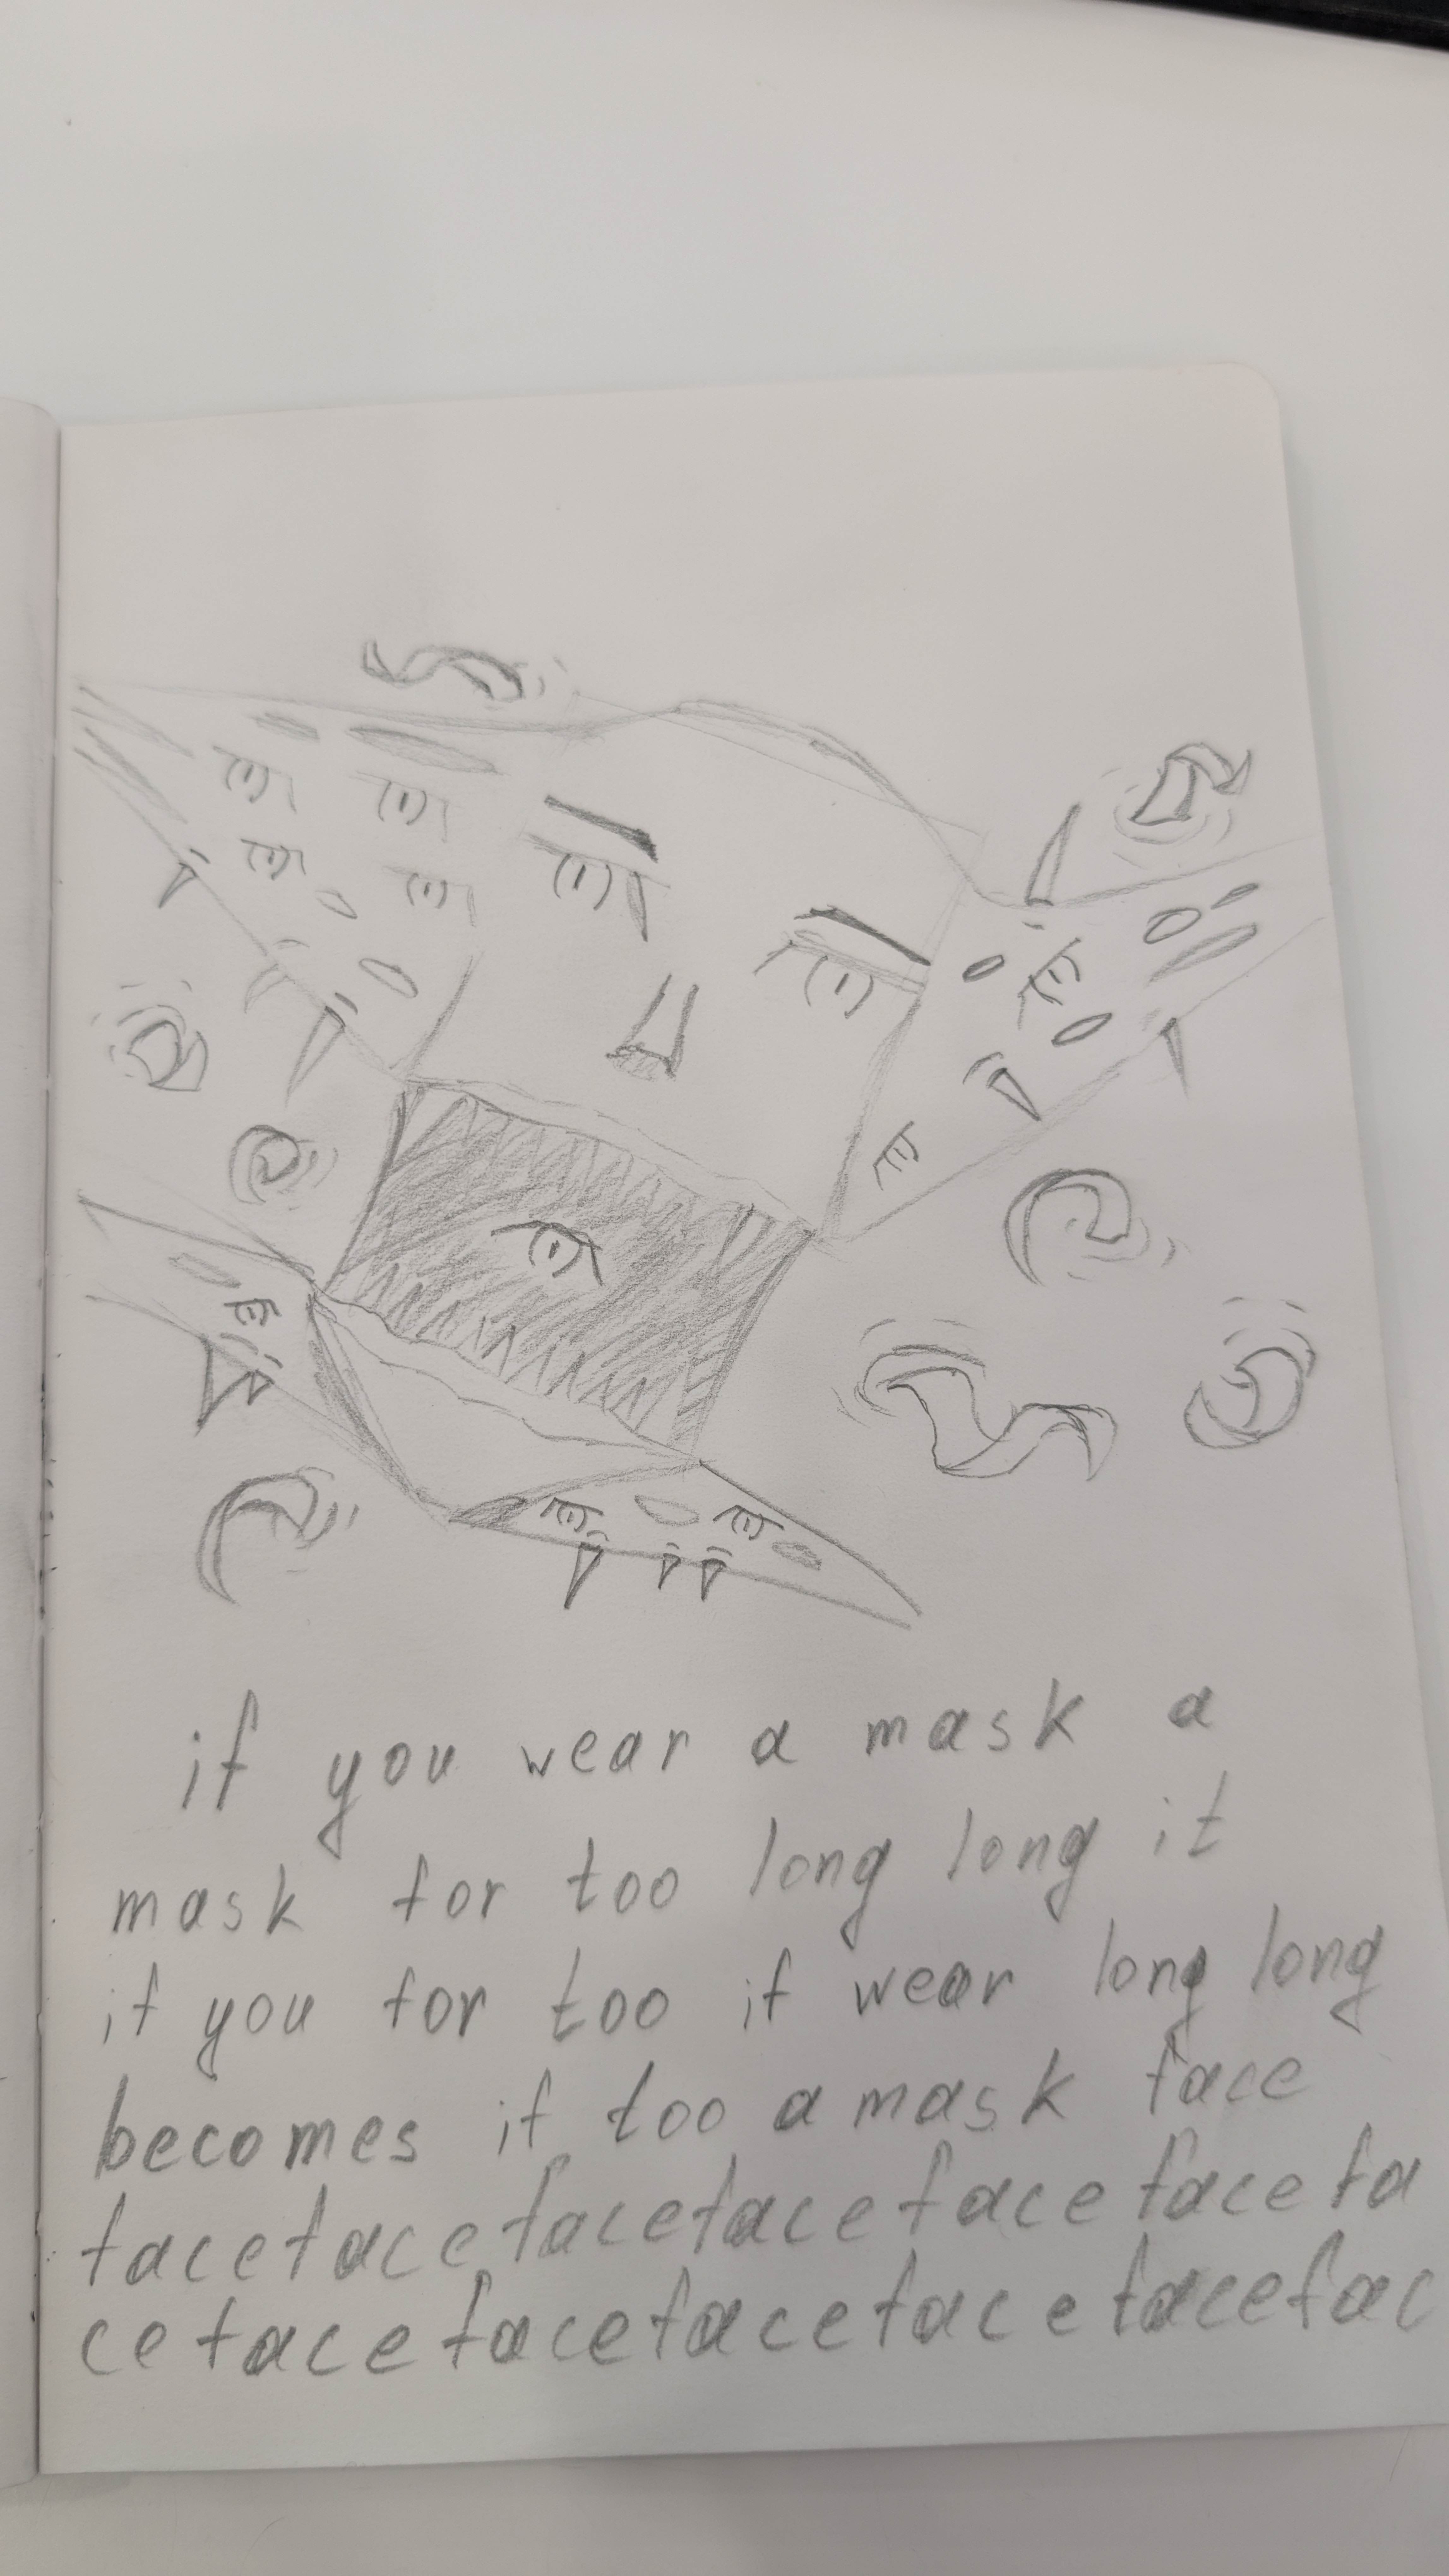 if you wear a mask a
mask for too long long it
if you for too if wear long long
becomes if too a mask face
facefacefacefacefacefacefa
cefacefacefacefacefacefac